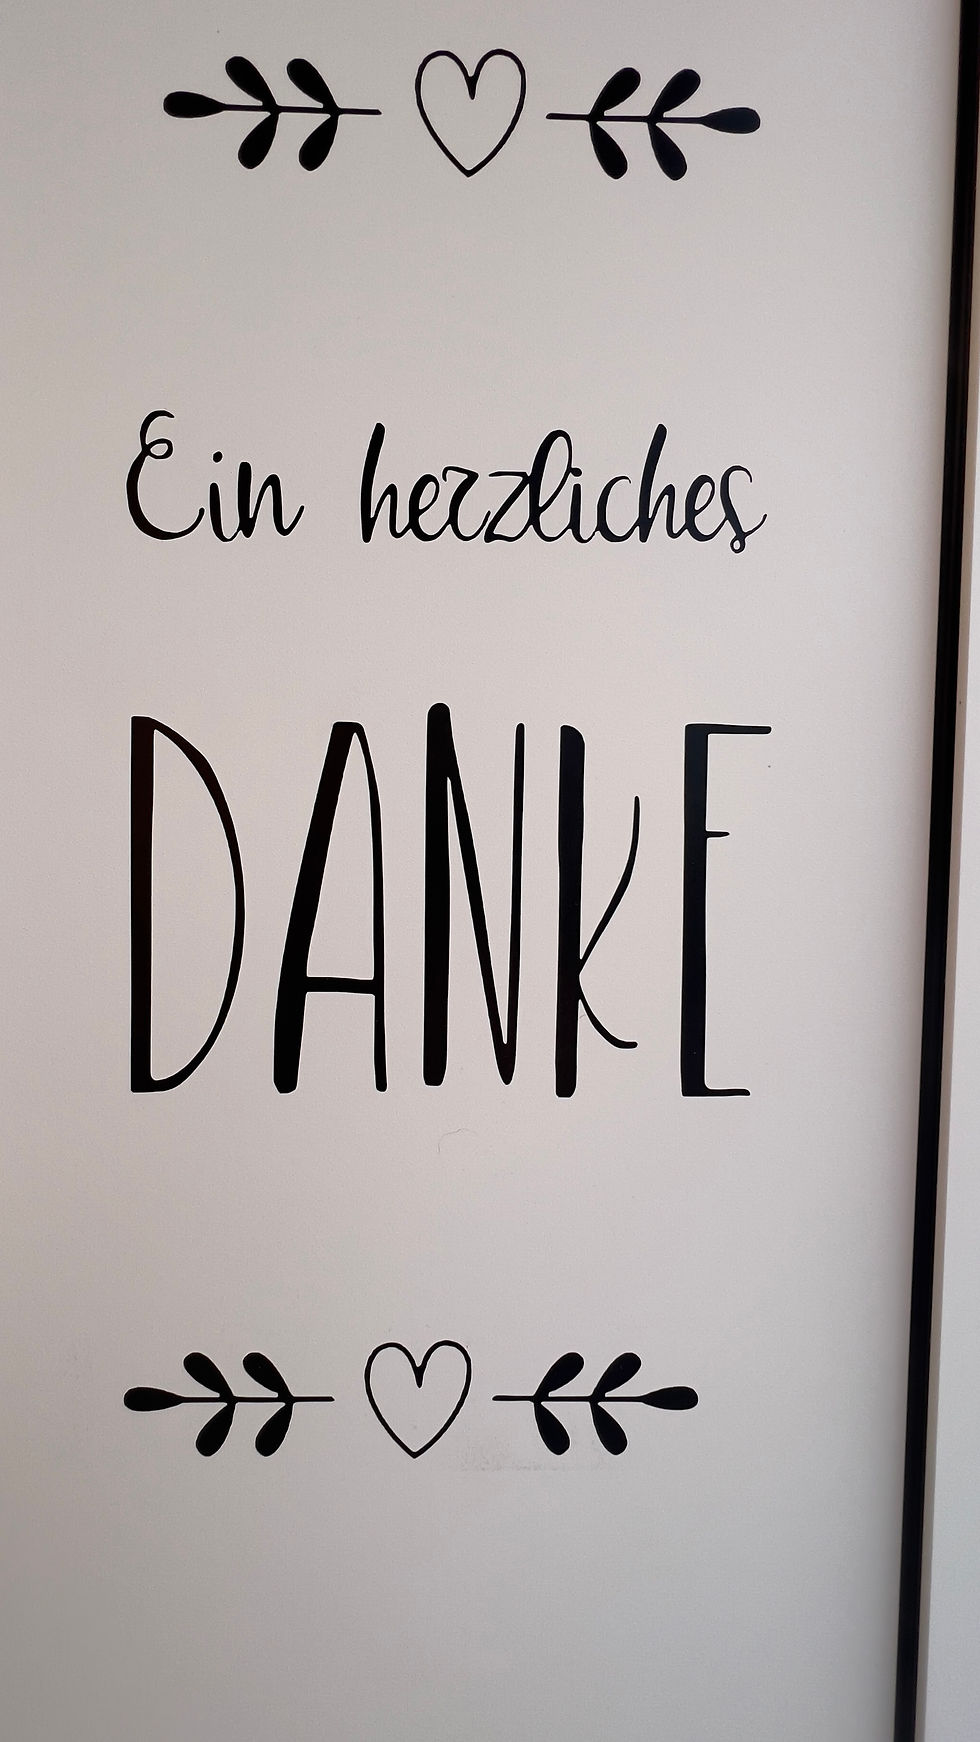 Ein herzliches
DANKE